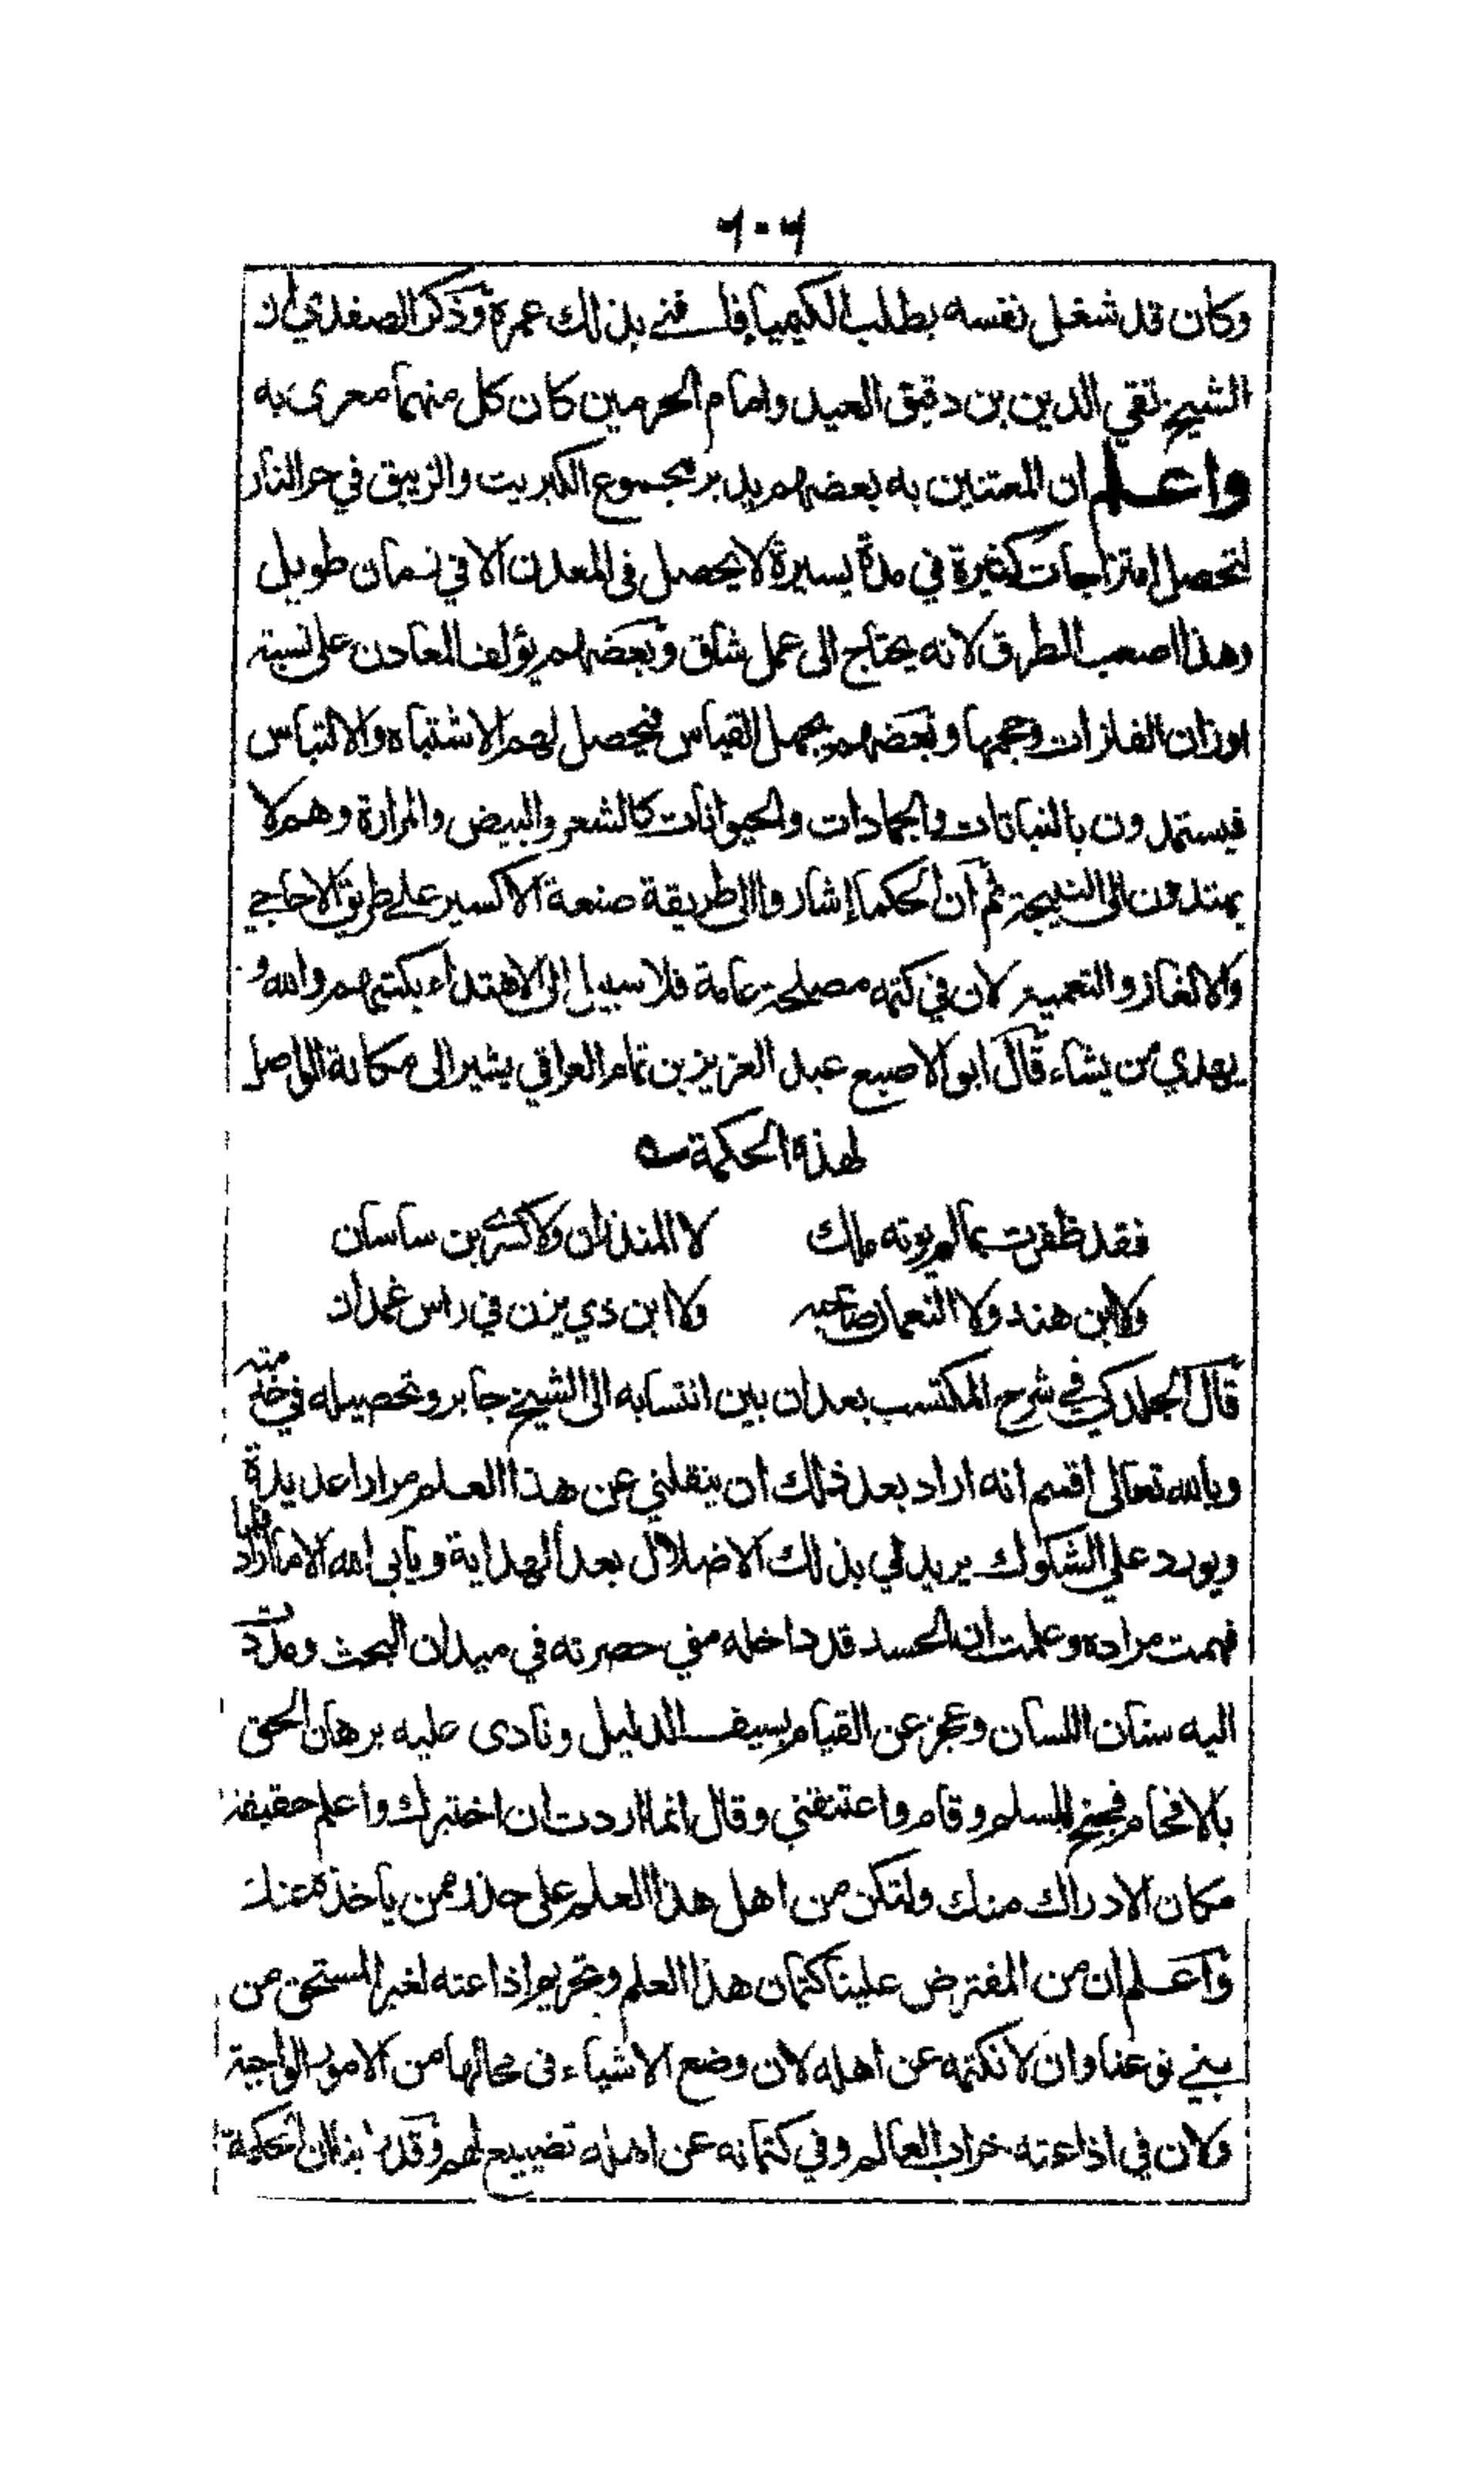 ٦٠٦
وكان قد شغل نفسه بطلب الكيميا فافنى بذلك عمره وذكر الصفدي ان
الشيخ تقي الدين بن دقيق العيد وامام الحرمين كان كل منهما مغرى به
واعلم ان المعتنين به بعضهم يدبر مجموع الكبريت والزيبق في حر النار
لتحصل امتزاجات كثيرة في مدة يسيرة لا يحصل فى المعدن الا في زمان طويل
وهذا اصعب الطرق لانه يحتاج الى عمل شاق وبعضهم يؤلف المعادن على نسبة
اوزان الفلزات وحجمها وبعضهم يجهل القياس فيحصل لهم الاشتباه والالتباس
فيستمدون بالنباتات والجمادات والحيوانات كالشعر والبيض والمرارة وهم لا
يهتدون الى النتيجة ثم ان الحكما اشاروا الى طريقة صنعة الاكسير على طريق الاحاجي
والالغاز والتعمية لان في كتمه مصلحة عامة فلا سبيل الى الاهتداء بكتبهم والله
يهدي من يشاء قال ابو الاصبع عبد العزيز بن تمام العراقي يشير الى مكانة الواصل
لهذه الحكمة
فقد ظفرت بما لم يوته ملك لا المنذران ولا كسرى بن ساسان
ولا ابن هند ولا النعمان صاحبه ولا ابن ذي يزن في راس غمدان
قال الجلدكي في شرح المكتسب بعد ان بين انتسابه الى الشيخ جابر وتحصيله في خدمته
وبالله تعالى اقسم انه اراد بعد ذلك ان ينقلني عن هذا العلم مرارا عديدة
ويورد علي الشكوك يريد لي بذلك الاضلال بعد الهداية ويأبى الله الا ما اراد فلما
فهمت مراده وعلمت ان الحسد قد داخله مني حصرته في ميدان البحث ومددت
اليه سنان اللسان وعجز عن القيام بسيف الدليل ونادى عليه برهان الحق
بالافحام فجنح للسلم وقام واعتنقني وقال انما اردت ان اختبرك واعلم حقيقة
مكان الادراك منك ولتكن من اهل هذا العلم على حذر ممن ياخذه عنك
واعلم ان من المفترض علينا كتمان هذا العلم وتحريم اذاعته لغير المستحق من
بني نوعنا وان لا نكتمه عن اهله لان وضع الاشياء فى محالها من الامور الواجبة
ولان في اذاعته خراب العالم وفي كتمانه عن اهله تضييع لهم وقد راينا ان الحكمة